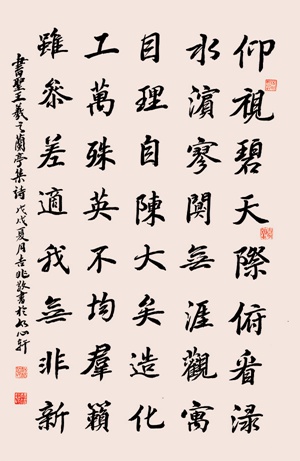 仰視碧天際俯看渌
水濱寥闃無涯觀寓
目理自陳大矣造化
工萬殊英不均羣籟
雖參差適我無非新
書聖王羲之蘭亭集詩戊戌夏月吉兆書於心軒